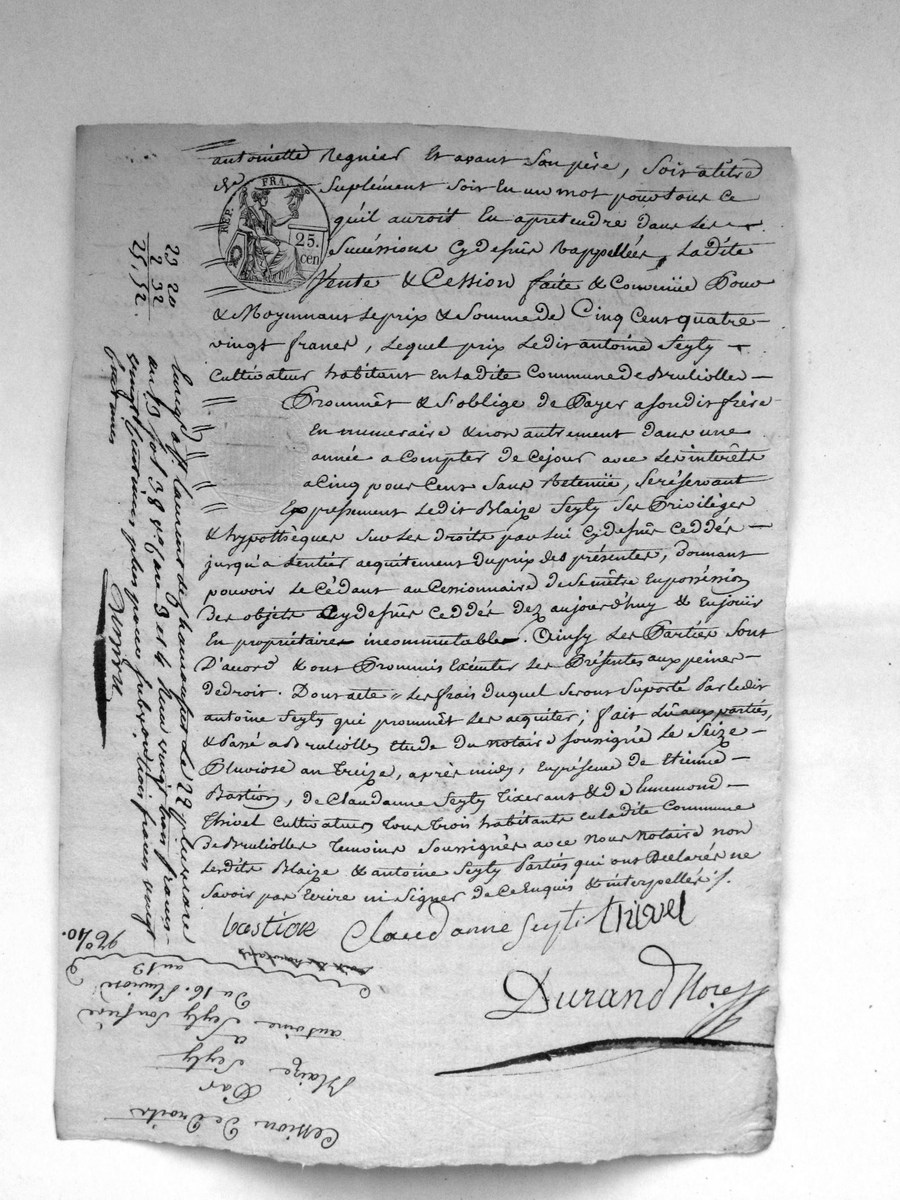 antoinette Regnier Et avant Son père, Soit atître
de Suplément Soit En un mot pour tous ce
quil auroit En apretendre dans les
Successions Cydessus Rappellées, Ladite
Vente & Cession faite & Convenüe Pour
& Moyennant Leprix & Somme de Cinq Cent quatre
vingt francs, Lequel prix Ledit antoine Seyty
Cultivateur habitant En Ladite Commune de Brulliolles
Prommêt & S'oblige de Payer a Son dit frère
En numeraire & non autrement dans une
année a Compter de Cejour avec Les interêts
a Cinq pour Cent Sans Retenüe, Se réservant
Expressement Ledit Blaize Seyty Ses Privilèges
& hypothèques Sur Les Droits par lui Cydessus Ceddés
jusqu'à Lentier acquitement du prix des présentes, donnant
pouvoir le Cédant au Cessionnaire de Se mêtre En possession
Des objets Cydessus Ceddés dez aujourd'huy & En joüir
En propriétaires incommutable. Ainsy Les Parties Sont
D'accord & ont Prommis Exécuter Les Présentes aux peines
de droit. Dont acte Les frais duquel Seront Suporté Par Ledit
antoine Seyty qui prommêt Les aquiter; fait Lû aux partiés,
& Passé a Brulliolles Etude du Notaire Soussigné Le Seize
Pluviose an treize, après midy, En présence de Etienne
Bastion, de Claudanne Seyty Tixerant & de Ennemond
Thivel Cultivateur, tous trois habitants En Ladite Commune
de Brulliolles Témoins Soussignés avec Nous Notaire non
Lesdits Blaize & antoine Seyty Partiés qui ont Déclarés ne
Savoir pas Ecrire ni Signer de Ce Enquis & interpellés /.
bastion Claudanne Seyti thivel
Durand Nore
REP. FRA.
25.
cen
23 20
2 32
25, 52.
Enreg. a St Laurent de Chamousset Le 22 pluviose
an 13 fol 38 vo Care 3 et 4 Reçu vingt trois francs
vingt Centimes plus pour subvention francs vingt
Centimes
Cession De Droits
Par
Blaize Seyty
a
antoine Seyty Son frère
Du 16. Pluviose
an 13